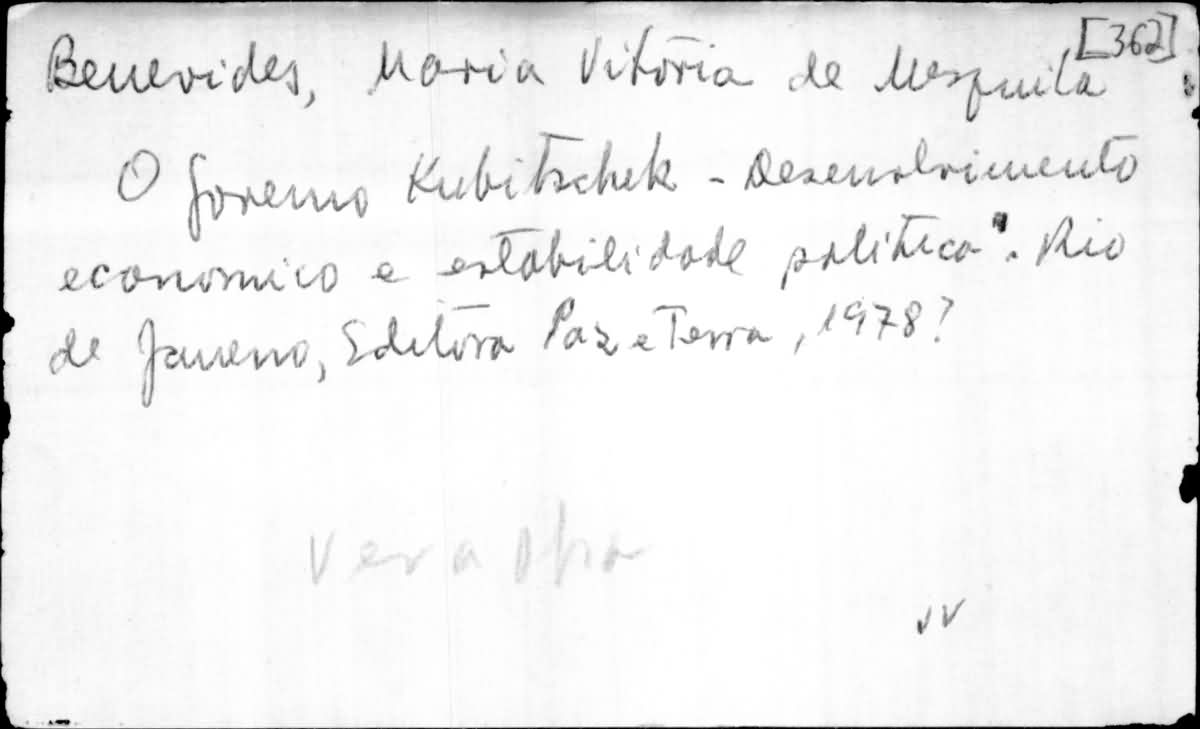 [362]
Benevides, Maria Vitória de Mesquita
O Governo Kubitschek - Desenvolvimento
economico e estabilidade politica". Rio
de Janeiro, Editora Paz e Terra, 1978?
Ver a obra